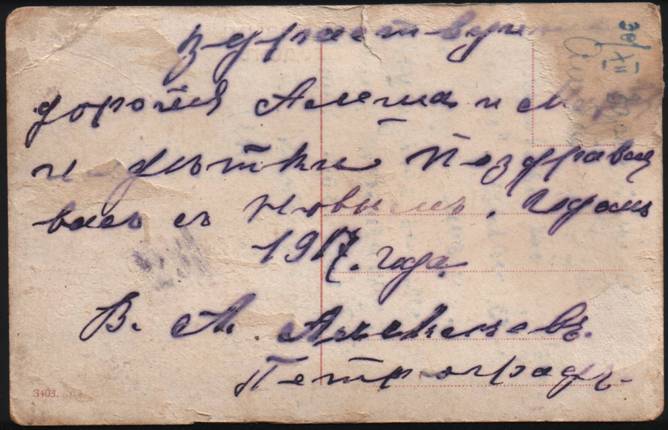 здраствуйте
дорогия Алеша и
и детки Поздравля
васъ съ новымъ. Годомъ
1917. года
В. А. Алексеевъ.
Петроградъ.
3403.